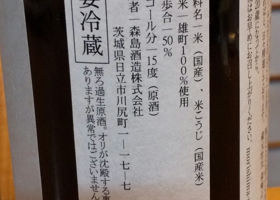 料名・米（国産）、米こうじ（国産米）
米一雄町100%使用
歩合一50%
コール分一15度（原酒）
者一森島酒造株式会社
茨城県日立市川尻町一ー一七ー七
要冷蔵
無ろ過生原酒。オリが沈殿する事
ありますが異常ではございません